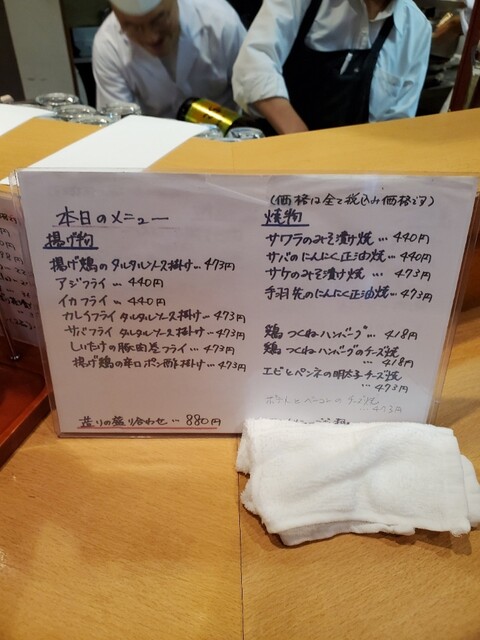 本日のメニュー
揚げ物
揚げ鶏のタルタルソース掛け…473円
アジフライ … 440円
イカフライ … 440円
カレイフライタルタルソース掛け…473円
サバフライ タルタルソース掛け…473円
しいたけの豚肉巻フライ…473円
揚げ鶏の辛口ポン酢掛け…473円
造りの盛り合わせ…880円
(価格は全て税込み価格です)
焼物
サワラのみそ漬け焼 … 440円
サバのにんにく正油焼 … 440円
サケのみそ漬け焼 … 473円
手羽先のにんにく正油焼…473円
鶏つくねハンバーグ… 418円
鶏つくねハンバーグのチーズ焼
…418円
エビとペンネの明太子チーズ焼
…473円
ベーコンのチーズ焼
…473円